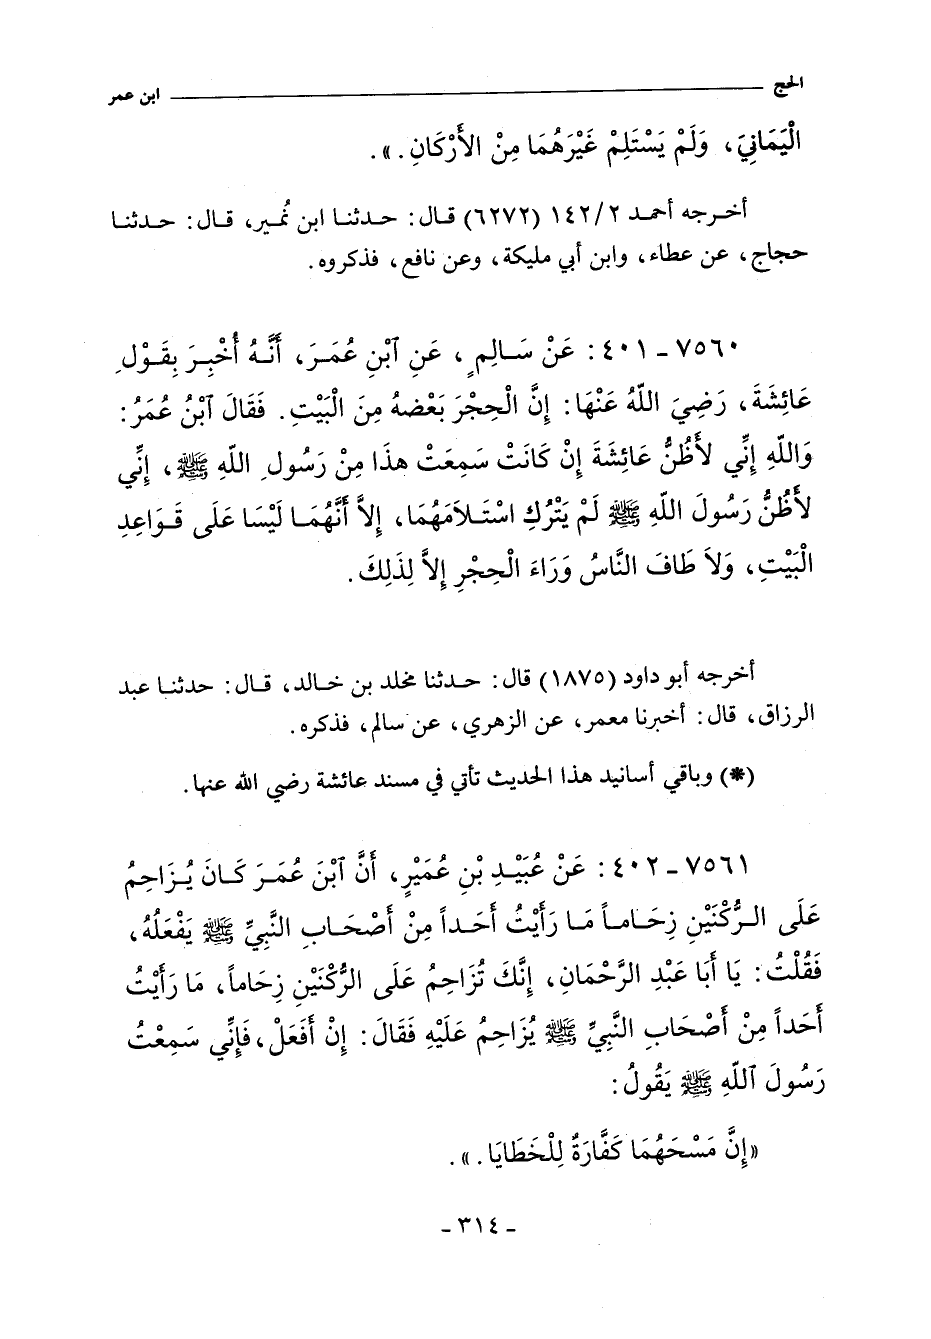 الحج ـــــــ ابن عمر
الْيَمَانِيَ، وَلَمْ يَسْتَلِمْ غَيْرَهُمَا مِنْ الأَرْكَانِ.».
أخرجه أحمد ١٤٢/٢ (٦٢٧٢) قال: حدثنا ابن نُمير، قال: حدثنا
حجاج، عن عطاء، وابن أبي مليكة، وعن نافع، فذكروه.
٧٥٦٠ - ٤٠١: عَنْ سَالِمٍ، عَنِ ٱبْنِ عُمَرَ، أَنَّهُ أُخْبِرَ بِقَوْلِ
عَائِشَةَ، رَضِيَ اللّهُ عَنْهَا: إِنَّ الْحِجْرَ بَعْضهُ مِنَ الْبَيْتِ. فَقَالَ ٱبْنُ عُمَرُ:
وَاللّهِ إِنِّي لأَظُنُّ عَائِشَةَ إِنْ كَانَتْ سَمِعَتْ هذَا مِنْ رَسُولِ اللّهِ ﷺ، إِنِّي
لأَظُنُّ رَسُولَ اللّهِ ﷺ لَمْ يَتْرُكِ اسْتَلاَمَهُمَا، إِلاَّ أَنَّهُمَا لَيْسَا عَلَى قَوَاعِدِ
الْبَيْتِ، وَلاَ طَافَ النَّاسُ وَرَاءَ الْحِجْرِ إِلاَّ لِذَلِكَ.
أخرجه أبو داود (١٨٧٥) قال: حدثنا مخلد بن خالد، قال: حدثنا عبد
الرزاق، قال: أخبرنا معمر، عن الزهري، عن سالم، فذكره.
(*) وباقي أسانيد هذا الحديث تأتي في مسند عائشة رضي الله عنها.
٧٥٦١ - ٤٠٢: عَنْ عُبَيْدِ بْنِ عُمَيْرٍ، أَنَّ ٱبْنَ عُمَرَ كَانَ يُزَاحِمُ
عَلَى الرُّكْنَيْنِ زِحَاماً مَا رَأَيْتُ أَحَداً مِنْ أَصْحَابِ النَّبِيِّ ﷺ يَفْعَلُهُ،
فَقُلْتُ: يَا أَبَا عَبْدِ الرَّحْمَانِ، إِنَّكَ تُزَاحِمُ عَلَى الرُّكْنَيْنِ زِحَاماً، مَا رَأَيْتُ
أَحَداً مِنْ أَصْحَابِ النَّبِيِّ ﷺ يُزَاحِمُ عَلَيْهِ فَقَالَ: إِنْ أَفَعَلْ، فَإِنِّي سَمِعْتُ
رَسُولَ ٱللّهِ ﷺ يَقُولُ:
«إِنَّ مَسْحَهُمَا كَفَّارَةٌ لِلْخَطَايَا.».
- ٣١٤ -